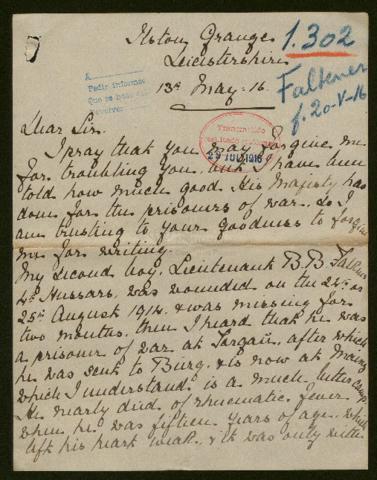 Ilston Grange
Leicestershire
1.302
Faltener
f. 20-V-16
A
Pedir informe
Que se
13th May. 16.
29 JUL 1916
Dear Sir.
I pray that you may forgive me
for troubling you. but I have been
told how much good His Majesty has
done for the prisoners of war. so I
am trusting to your goodness to forgive
me for writing.
My second boy. Lieutenant B. B. Falkner
4th Hussars. was wounded on the 24th or
25th August 1914. & was missing for
two months. then I heard that he was
a prisoner of war at Torgau, after which
he was sent to Burg. & is now at Mainz
which I understand is a much better camp.
He nearly died of rheumatic fever
when he was fifteen years of age. which
left his heart weak. & it was only with